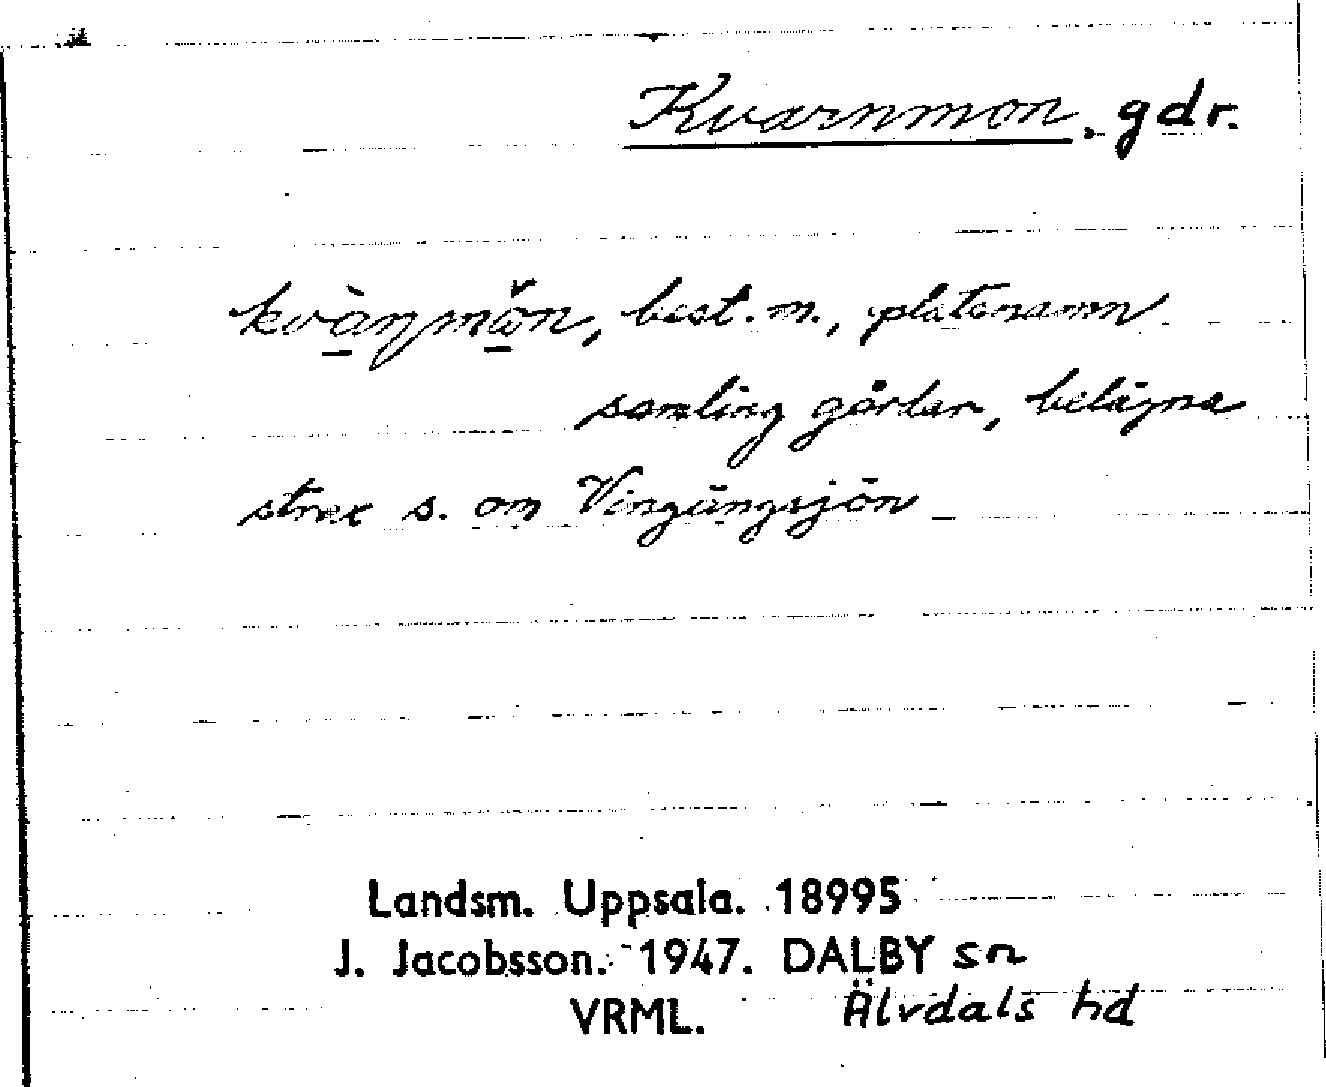 Kvarnmon, gdr.
kvàṇmǒn, best. m., platsnamn
samling gårdar, belägna
strax s. om Vingängsjön
Landsm. Uppsala. 18995
J. Jacobsson. 1947. DALBY sn
VRML. Älvdals hd